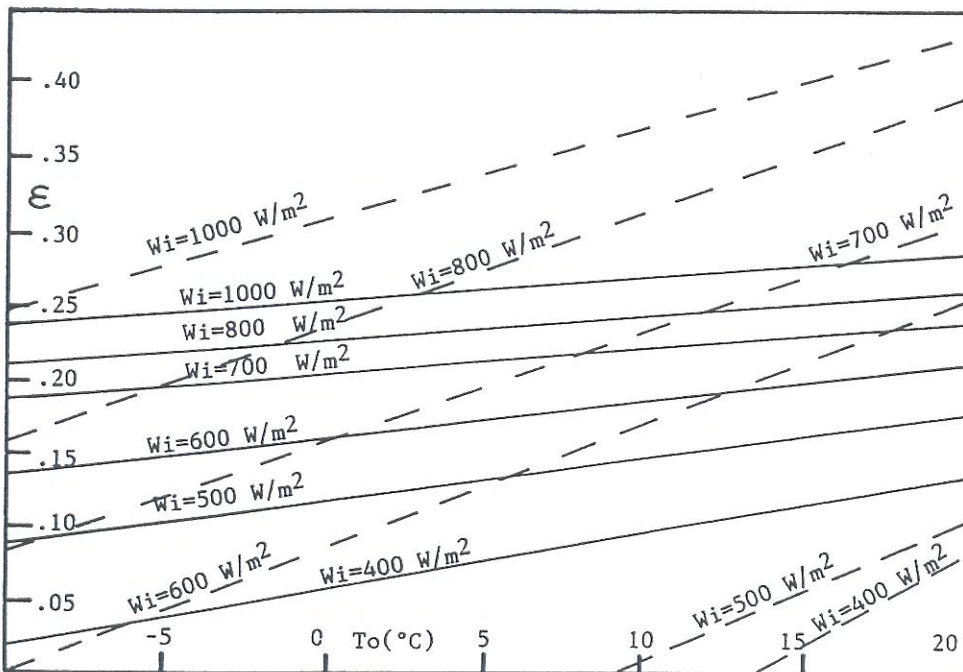 .40
.35
ε
.30
Wi=1000 W/m²
Wi=800 W/m²
Wi=700 W/m²
.25
Wi=1000 W/m²
Wi=800 W/m²
.20
Wi=700 W/m²
.15
Wi=600 W/m²
.10
Wi=500 W/m²
.05
Wi=600 W/m²
Wi=400 W/m²
Wi=500 W/m²
Wi=400 W/m²
-5 0 To(°C) 5 10 15 20